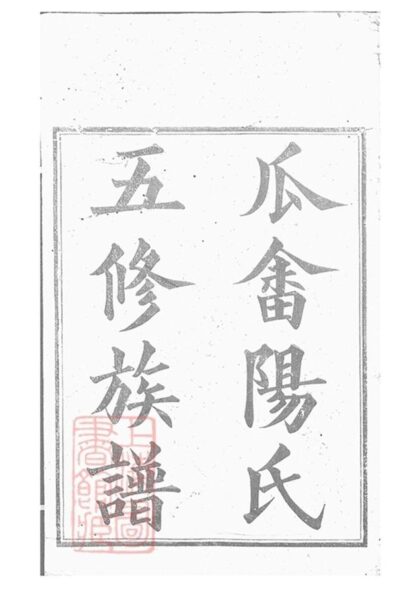 瓜畬陽氏
五修族譜